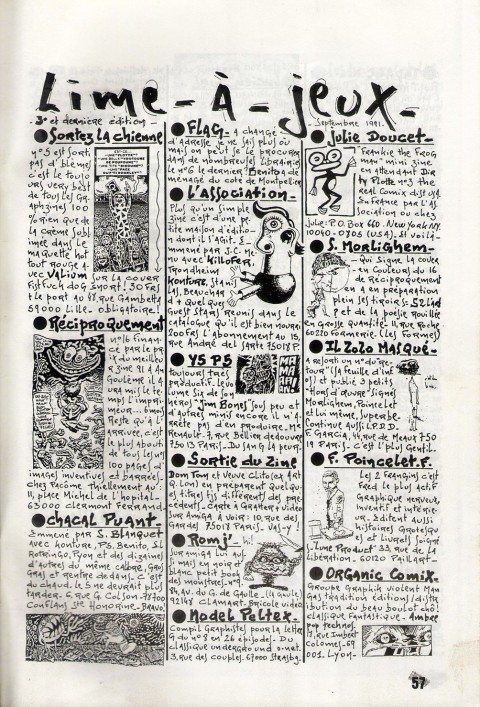 Lime-à-jeux-
3e et dernière édition-
-Septembre 1991-
Sortez la chienne
n°5 est sorti
pas d'blème
c'est le toujours
very best
de tous les Graphzines
100
% rien que de
la crème sublimée
dans le
maquette hot
tout rouge a
vec Valium sur la cover
fistfuck dog short! 30F
+ le port au 48, rue Gambetta
59000 Lille- obligatoire!
Réciproquement
n°16 finan
cé par le prix
du meilleur
zine 91 à An
goulême il a
ura mis le te
mps l'impri
meur... 6mois
Reste qu'à l'
arrivée, c'est
le plus abouti
de tous les n°s
100 pages d'
images inventives et barrées-
chez Pacôme Thiellement au 1
11, place Michel de l'hopital-
63000 Clermont Ferrand-
Chacal Puant-
Emmené par S. Blanquet
avec Konture, PS. Benito, El
Rotringo, Pyon et des dizaines
d'autres du même cabare, gras
gras et rentre-dedans- C'est
au chaud. Le 5 ne devrait plus
tarder- 6 rue G. Colson- 78700
Conflans Ste Honorine- Bravo!
FLAG- a changé
d'adresse je ne sais plus où
mais on peut se le procurer
dans de nombreuses librairies
le n°6 le dernier, Benito a dé
ménagé du coté de Montpellier
L'Association-
Plus qu'un simple
zine c'est d'une pe
tite maison d'éditi
on dont il s'agit. E
mmené par J.C. Me
nu avec Killofer,
Trondheim
Konture, Stanis
las, Beauchar
d + quelques
Guest Stars réunis dans le
catalogue qu'il est bien nourri
200F les l'abonnement au 15,
rue André del Sarte 75018 P.
Y5 P5
toujours très
productif- Le vo
lume six de son
héros "Jim Bones" sous peu et
d'autres minis encore il n'a
rrête pas d'en produire- Mc
Renault- 7, rue Bellier dedouvre
75013 Paris- Du sang la peur
Sortie du Zine
Dom Tom et Veuve Clito (ex Art
Q. Con) en préparent quelqu
es titres tjs différents des pré
cédents- Carte à gratter + vidéo
sur Amiga à voir: 10, rue des
Gardes 75018 Paris- Vas-y!
Romj'- hi!
sur Amiga lui au
ssi mais en noir et
blanc petit book
des monstres n°9
84, Av- du G. de Gaulle (14 Gauls)
92148 Clamart- Bricole vidéo
Model Peltex-
Compil Graphiste pour la lettre
G du n°8 en 26 épisodes- Du
classique underground o-nat.
3, rue des couples- 67000 Strasbg-
Julie Doucet-
"Frankie the Frog
man" mini zine
en attendant Dir
ty Plotte n°3 the
real comix dist USA
en France par l'As
sociation ou chez
Julie- P.O. Box 660- New York NY-
10040-0705 (USA)- Et voilà-
S. Morlighem-
- Qui signe la cover
en couleurs du 16
de Réciproquement
en a en préparation
plein ses tiroirs: SZ Lad
et de la poésie rouillée
en grosse quantité- 11, rue Roche
60220 Formerie- (Les Formes)
Il Zolo Masqué-
A ressorti un n° du "Re
tour" (sa feuille d'in
fos) et publié 3 petits
"Hors d'œuvre" signés
Morlighem, Poincelet
et lui même, superbe-
Continue aussi L.P.D.D.
F. Garcia, 44, rue de Meaux 750
19 Paris- C'est l'plus gentil-
F. Poincelet.F.
Les 2 Frangins c'est
Fred le plus actif-
Graphique nerveux,
inventif et intérie
ur- Editent aussi
histoires grotesqu
es et livres soignés
"Lime Product" 33, rue de la
Libération- 60120 Paillart-
Organic Comix-
Groupe Graphik violent Man
gas tradition éditions/distri
bution du beau boulot chô!
classique fantastique- Ambre
pop Technos
17, rue Imbert
Colomes- 69
001- Lyon-
57